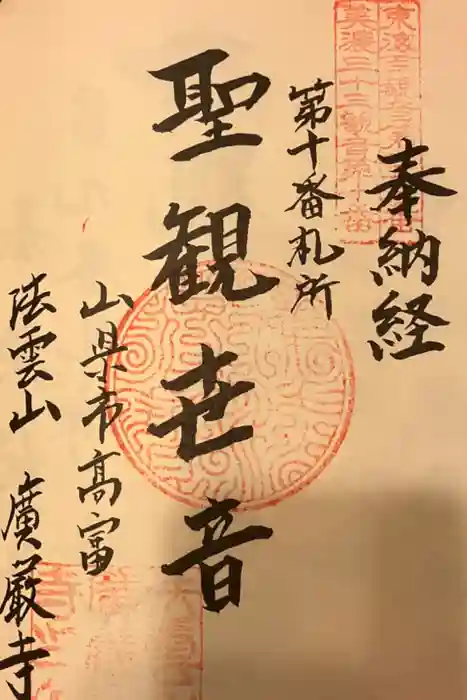 奉納経
第十番札所
聖観世音
山県市高富
法雲山 廣厳寺
美濃三十三観音第十番